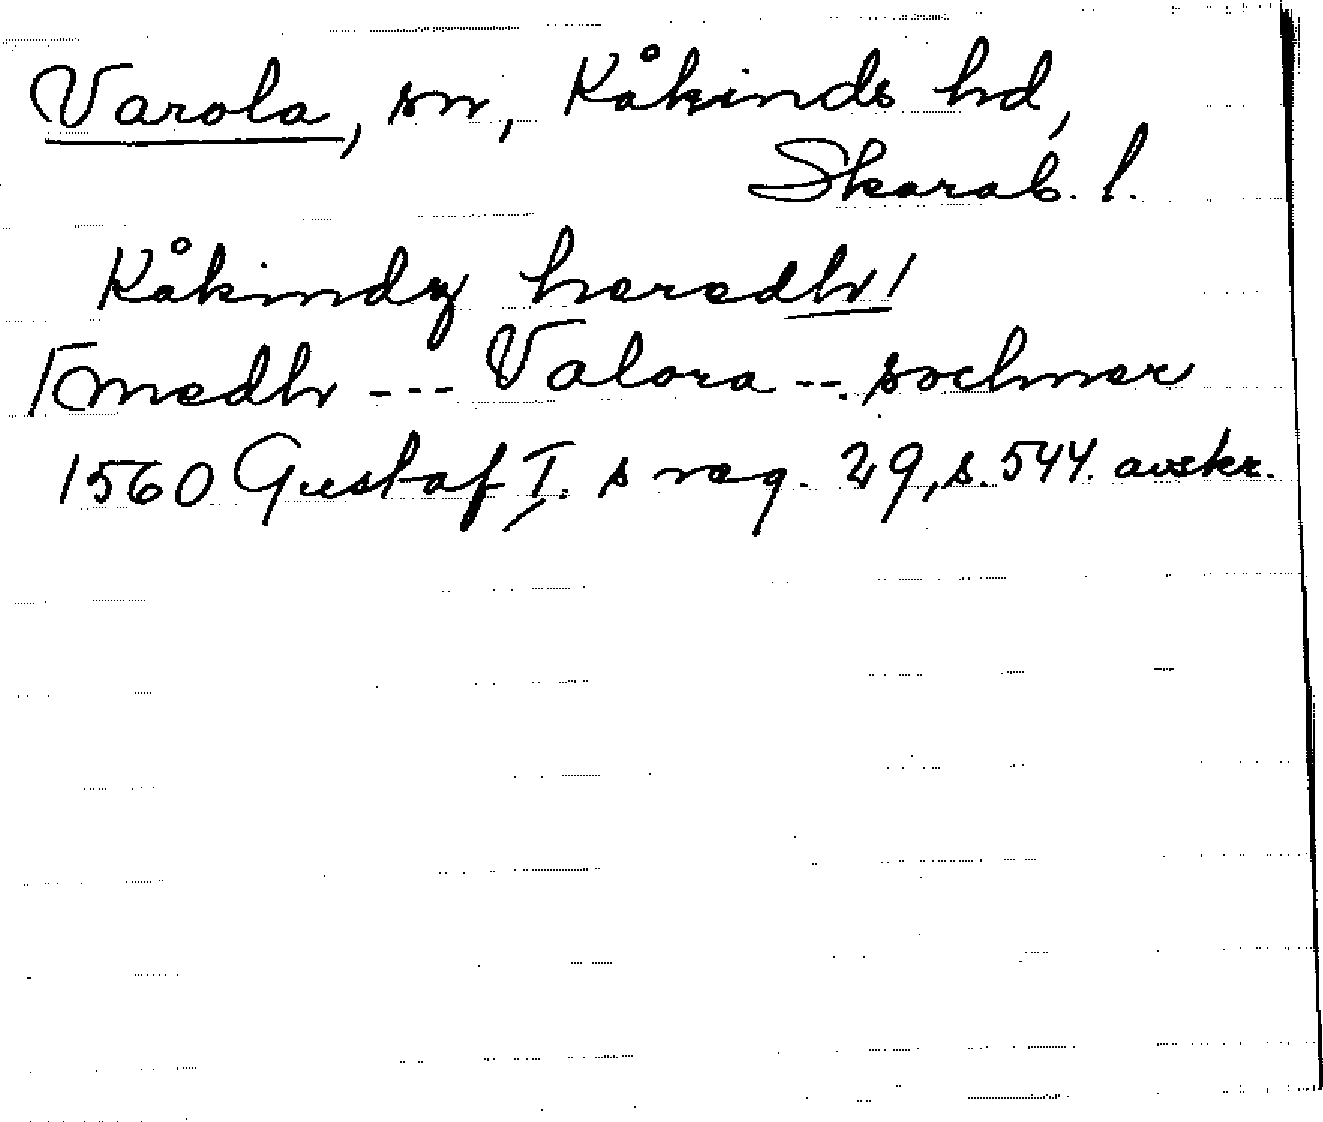 Varola, sn, Kåkinds hd,
Skarab. l.
Kåkindz heredhr/
/medhr --- Valora -- sochner
1560 Gustaf I. s reg. 29, s. 544. avskr.